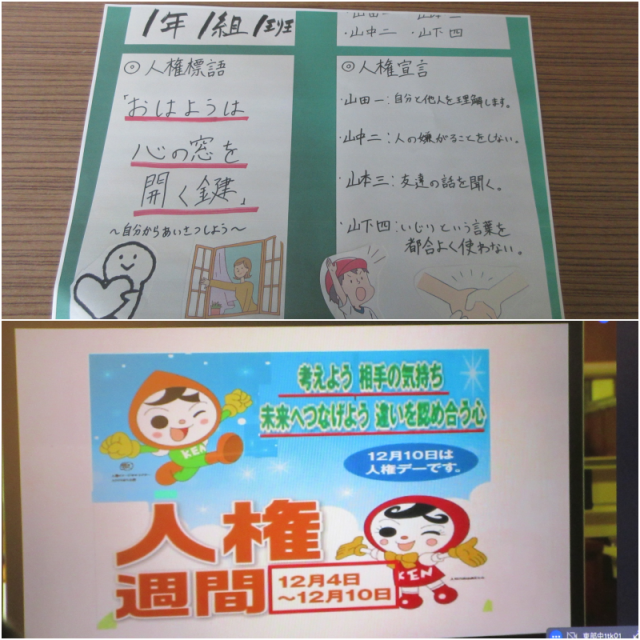 1年 1組 1班
・山中二 ・山下四
◎人権標語
「おはようは
心の窓を
開く鍵」
～自分からあいさつしよう～
◎人権宣言
・山田一：自分と他人を理解します。
・山中二：人の嫌がることをしない。
・山本三：友達の話を聞く。
・山下四：いじりという言葉を
都合よく使わない。
考えよう 相手の気持ち
未来へつなげよう 違いを認め合う心
12月10日は
人権デーです。
KEN
人権
週間
12月4日
～12月10日
KEN